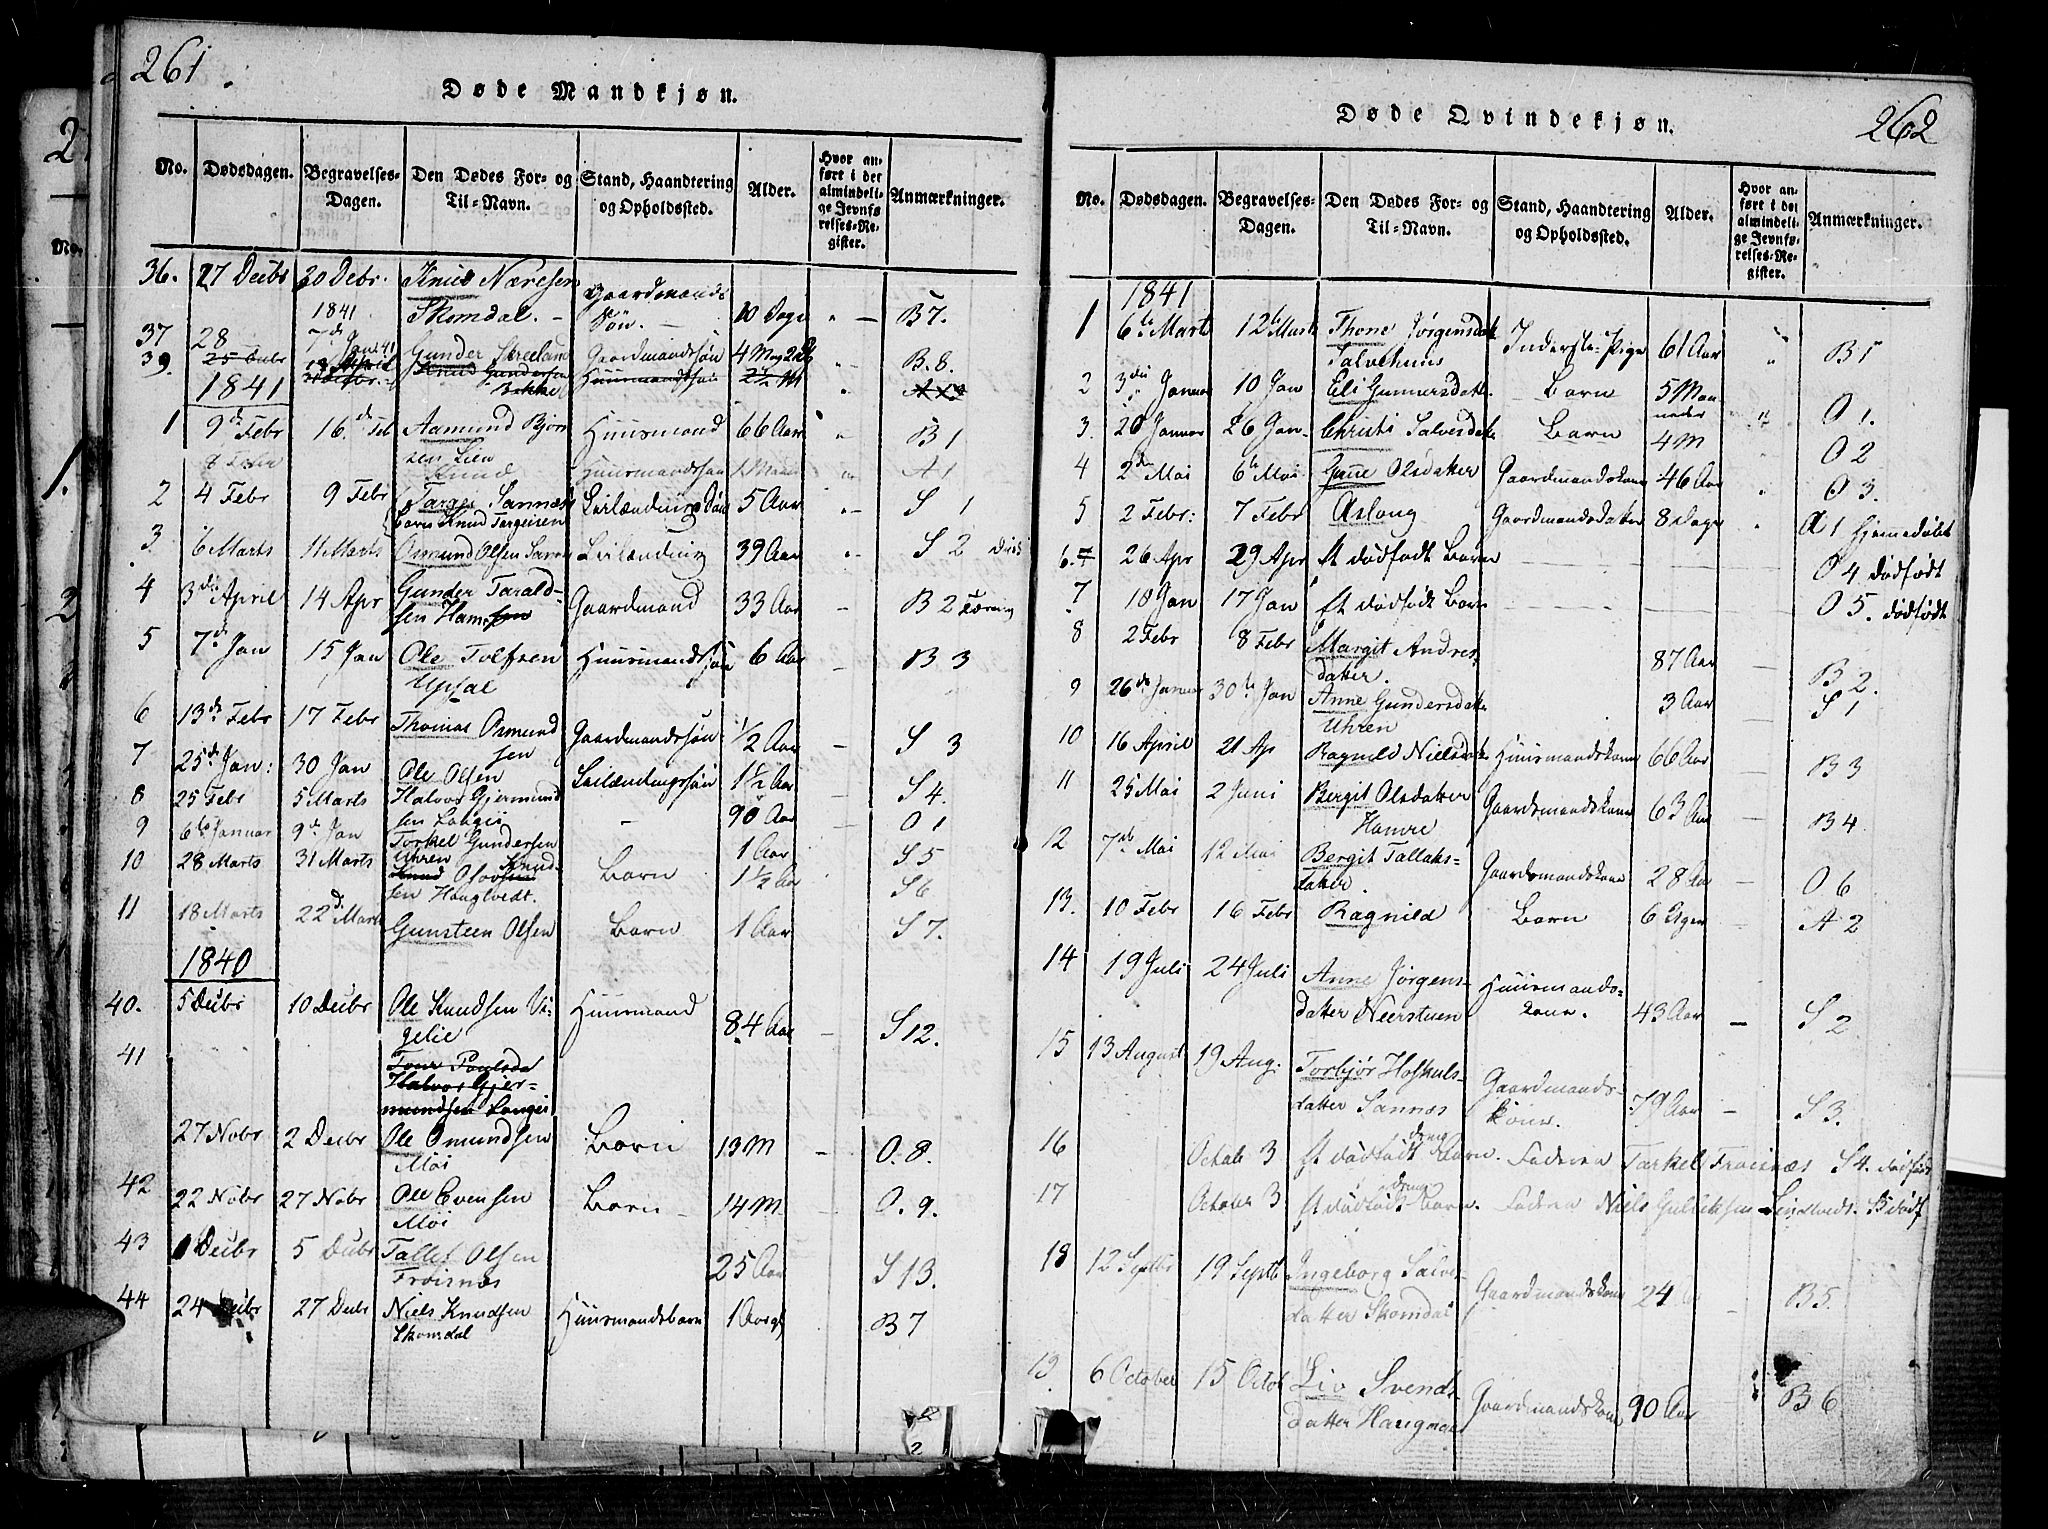 261
Døde Mandkjøn.
No. Dødsdagen. Begravelses-Dagen. Den Dødes For- og Til-Navn. Stand, Haandtering og Opholdssted. Alder. Hvor anført i det almindelige Jevnførelses-Register. Anmærkninger.
36. 27 Decbr 30 Decbr. Knud
Skomdal. Gaardmands Søn. 10 Dage B 7.
37 28 1841 7de Jan 41 Gunder Gaardmandssøn B. 8.
39. Knud Gundersen Huusmandssøn 2½ M
1841
1 9de Febr 16de Feb Aamund Bjørnsen Lien Huusmand 66 Aar B 1
Knud Huusmandssøn A 1
2 4 Febr 9 Febr Targei Sannes Leilændings Søn 5 Aar S 1
Knud Targeisen
3 6 Marts 11 Marts Osmund Olsen Leilænding 39 Aar S 2
4 3die April 14 Apr Gunder Taraldsen Ham Gaardmand 33 Aar B 2
5 7de Jan 15 Jan Ole Tolfsen Upsal Huusmandssøn 6 Aar B 3
6 13de Febr 17 Febr Thomas Osmundsen Gaardmandssøn ½ Aar S 3
7 25de Jan: 30 Jan Ole Olsen Leilændingssøn 1½ Aar S 4.
8 25 Febr 5 Marts Halvor Gjermundsen Langei 90 Aar O 1
9 6te Januar 9de Jan Torkel Gundersen Uhren 1 Aar S 5
10 28 Marts 31 Marts Olav Knudsen Haugtvedt. Barn 1½ Aar S 6
11 18 Marts 22d. Marts Gunsteen Olsen Barn 1 Aar S 7.
1840
40. 5 Decbr 10 Decbr Ole Knudsen Vigelie Huusmand 84 Aar S 12.
41 Halvor Gjermundsen Langei
27 Nobr 2 Decbr Ole Omundsen Moi Barn 13 M O. 8.
42 22 Nobr 27 Nobr Ole Evensen Moi Barn 14 M O. 9.
43 1 Decbr 5 Decbr Tallef Olsen Froisnæs 25 Aar S 13.
44 24 Decbr 27 Decbr Niels Knudsen Skomdal Huusmandsbarn 1 Aar B 7
262
Døde Qvindekjøn.
No. Dødsdagen. Begravelses-Dagen. Den Dødes For- og Til-Navn. Stand, Haandtering og Opholdssted. Alder. Hvor anført i det almindelige Jevnførelses-Register. Anmærkninger.
1841
1 6te Marts 12te Marts Thone Jørgensdatter Inderste-Pige 61 Aar B 1
2 3die Januar 10 Jan Eli Gunnersdatter. Barn 5 Maaneder O 1.
3. 20 Januar 26 Jan Christi Salvesdatter Barn 4 M O 2
4 2den Mai 6te Mai Olsdatter Gaardmandskone 46 Aar O 3.
5 2 Febr: 7 Febr Asloug Gaardmandsdatter 8 Dage A 1 hjemmedøbt
6. 26 Apr 29 Apr Et dødfødt Barn O 4 dødfødt
7 10 Jan 17 Jan Et dødfødt Barn O 5. dødfødt
8 2 Febr 8 Febr Margit Andresdatter. 87 Aar B 2.
9 26de Januar 30te Jan Anne Gundersdatter Uhren 3 Aar S 1
10 16 April 21 Ap Ragnild Nielsdatter Huusmandskone 66 Aar B 3
11 25 Mai 2 Juni Bergit Olsdatter Hamre Gaardmandskone 63 Aar B 4
12 7de Mai 12 Mai Bergit Tallaksdatter. Gaardmandskone 28 Aar O 6
13. 10 Febr 16 Febr Ragnild Barn 6 Uger A 2
14 19 Juli 24 Juli Anne Jørgensdatter Neerstuen Huusmandskone. 43 Aar S 2
15 13 August 19 Aug: Torbjør Hoskulsdatter Sannæs Gaardmandskone. 79 Aar S 3.
16 Octob 3 Et dødfødt Barn. Faderen Tarkel Froisnæs S 4. dødfødt
17 Octobr 3 Et dødfødt Barn. Faderen Niels Gulliksen
18 12 Septbr 19 Septb Ingeborg Salvesdatter Skomdal Gaardmandskone 24 B 5.
19 6 October 15 Octob Liv Svendsdatter Gaardmandskone 90 Aar B 6